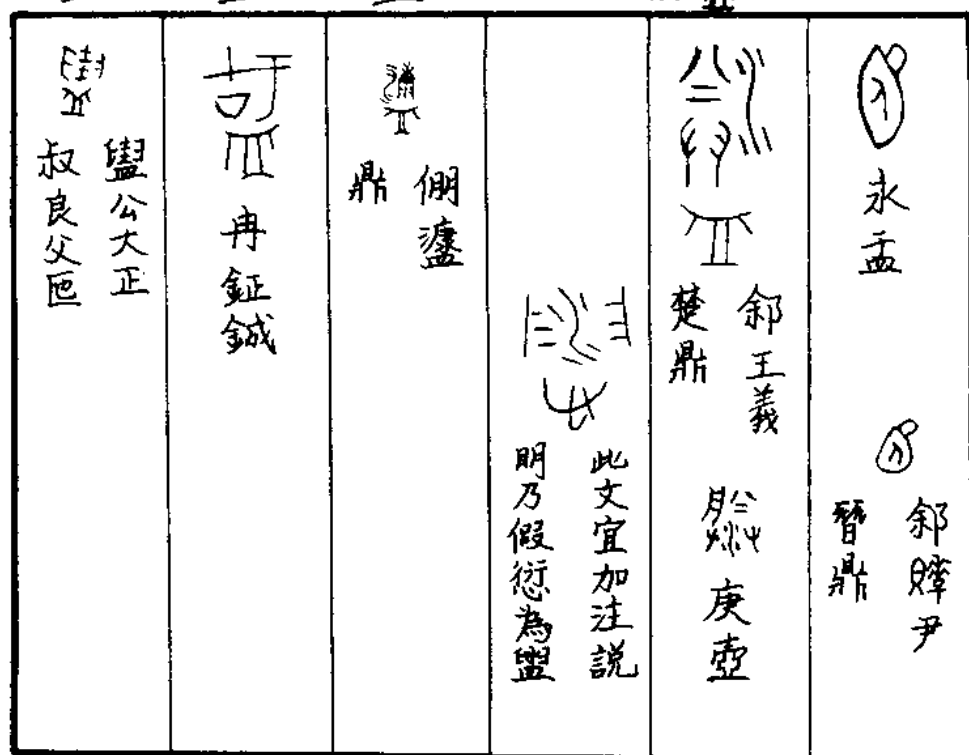 永盂
䣄尹
朁鼎
䣄王義
楚鼎
庚壺
此文宜加注説
明乃假愆為盥
倗
鼎
冉鉦鋮
公大正
叔良父匜